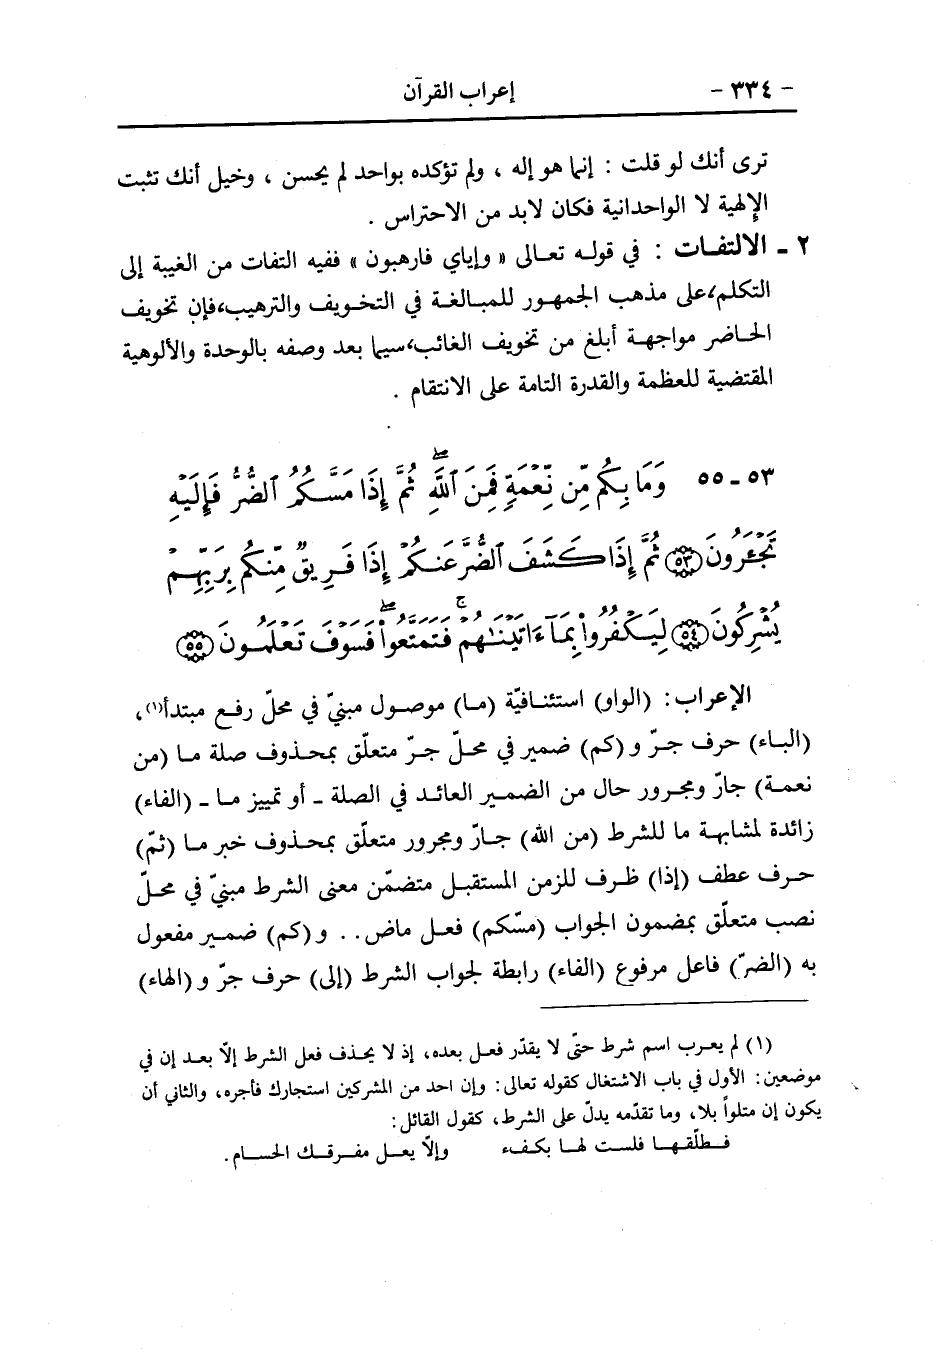 - ٣٣٤ -
إعراب القرآن
ترى أنك لو قلت : إنما هو إله ، ولم تؤكده بواحد لم يحسن ، وخيل أنك تثبت
الإلهية لا الواحدانية فكان لابد من الاحتراس .
٢ ـ الالتفات : في قوله تعالى « وإياي فارهبون » ففيه التفات من الغيبة إلى
التكلم،على مذهب الجمهور للمبالغة في التخويف والترهيب،فإن تخويف
الحاضر مواجهة أبلغ من تخويف الغائب،سيما بعد وصفه بالوحدة والألوهية
المقتضية للعظمة والقدرة التامة على الانتقام .
٥٣ ـ ٥٥ وَمَا بِكُم مِّن نِّعْمَةٍ فَمِنَ ٱللَّهِ ۖ ثُمَّ إِذَا مَسَّكُمُ ٱلضُّرُّ فَإِلَيْهِ
تَجْـَٔرُونَ ٥٣ ثُمَّ إِذَا كَشَفَ ٱلضُّرَّ عَنكُمْ إِذَا فَرِيقٌ مِّنكُم بِرَبِّهِمْ
يُشْرِكُونَ ٥٤ لِيَكْفُرُوا۟ بِمَآ ءَاتَيْنَـٰهُمْ ۚ فَتَمَتَّعُوا۟ ۖ فَسَوْفَ تَعْلَمُونَ ٥٥
الإعراب : (الواو) استئنافيّة (ما) موصول مبنيّ في محلّ رفع مبتدأ(١)،
(الباء) حرف جرّ و(كم) ضمير في محلّ جرّ متعلّق بمحذوف صلة ما (من
نعمة) جارّ ومجرور حال من الضمير العائد في الصلة ـ أو تمييز ما ـ (الفاء)
زائدة لمشابهة ما للشرط (من الله) جارّ ومجرور متعلّق بمحذوف خبر ما (ثمّ)
حرف عطف (إذا) ظرف للزمن المستقبل متضمّن معنى الشرط مبنيّ في محلّ
نصب متعلّق بمضمون الجواب (مسّكم) فعل ماض.. و(كم) ضمير مفعول
به (الضرّ) فاعل مرفوع (الفاء) رابطة لجواب الشرط (إلى) حرف جرّ و(الهاء)
(١) لم يعرب اسم شرط حتّى لا يقدّر فعل بعده، إذ لا يحذف فعل الشرط إلّا بعد إن في
موضعين: الأول في باب الاشتغال كقوله تعالى: وإن احد من المشركين استجارك فأجره، والثاني أن
يكون إن متلواً بلا، وما تقدّمه يدلّ على الشرط، كقول القائل:
فطلّقها فلست لها بكفء وإلّا يعل مفرقك الحسام.